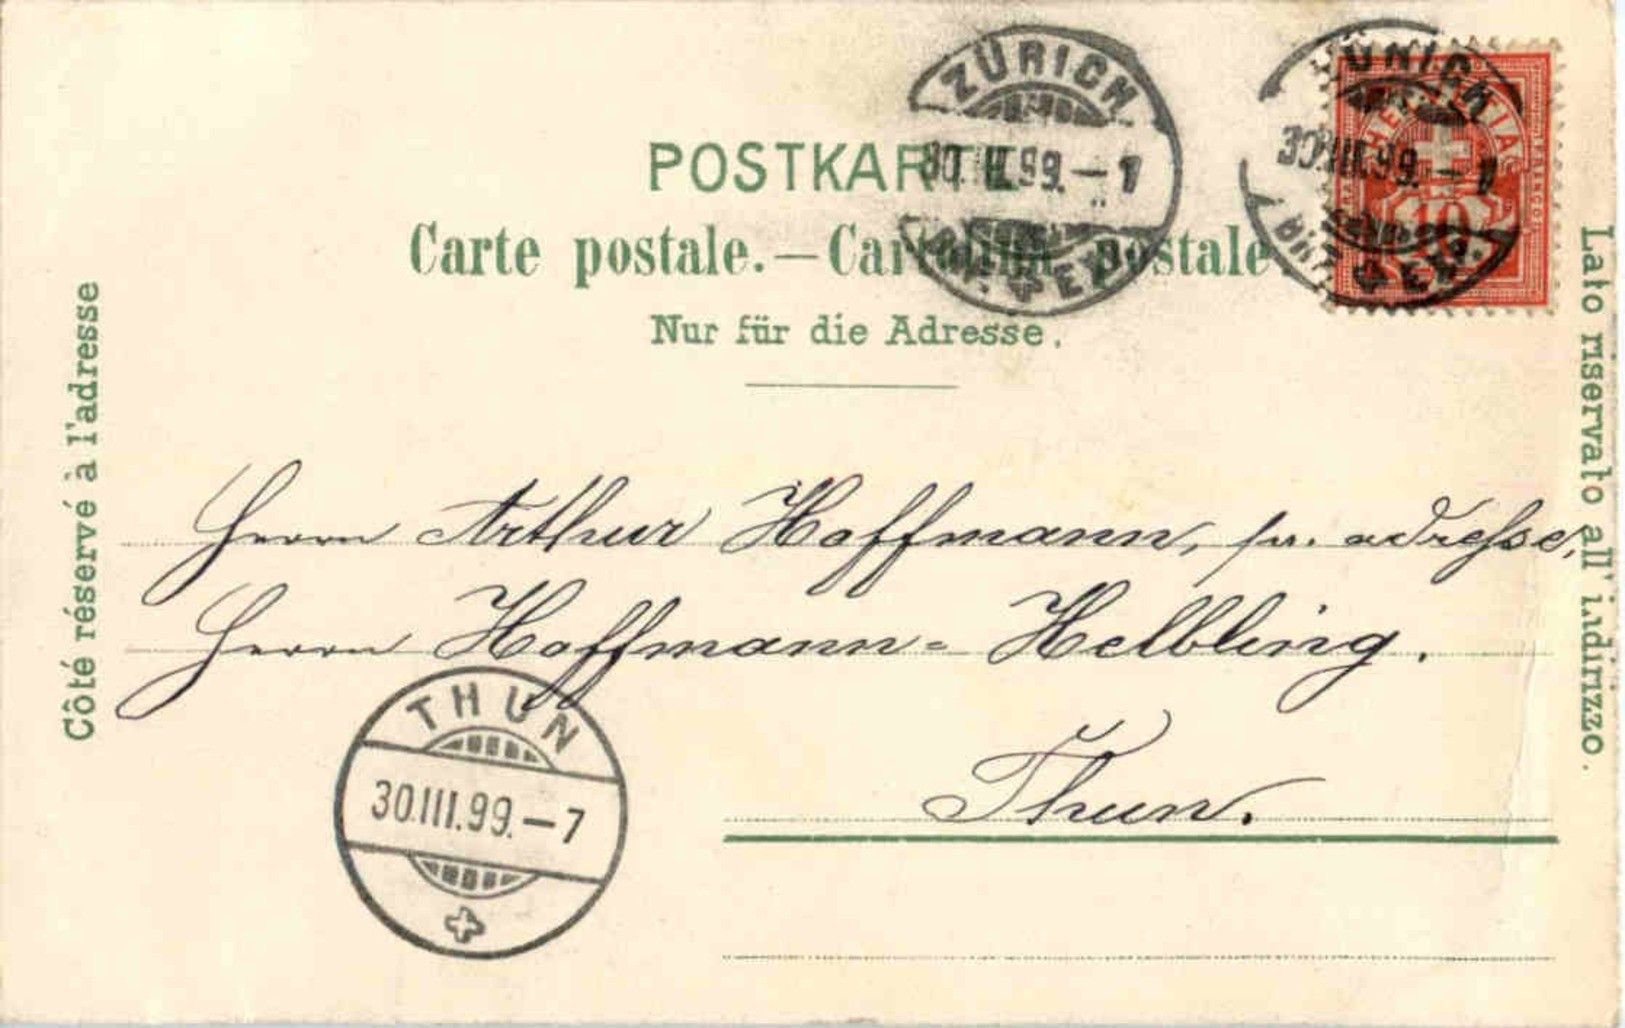 ZÜRICH
30.III.99.–1
EXP.
ZÜRICH
30.III.99.–1
BRF. EXP.
HELVETIA
10
POSTKARTE
Carte postale.—Cartolina postale.
Nur für die Adresse.
Côté réservé à l'adresse
Lato riservato all'indirizzo.
Herrn Arthur Hoffmann, pr. adresse,
Herrn Hoffmann-Helbling.
Thun.
THUN
30.III.99.–7